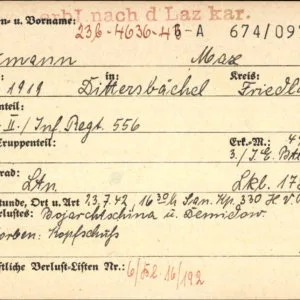 verbl nach d Laz kar.
n- u. Vorname: 236-4636-45 B-A 674/097
mann Max
1919 in: Dittersbächel Kreis: Friedla
nteil:
II./Inf Regt. 556
Truppenteil: Erk.-M.: 4
3./I.E. Btl
rad: Ltn Lkl. 17
tunde, Ort u. Art 23.7.42, 16 30h San. Kp. 330 H.V.
rlustes: Bojarschtschina u. Demidow.
orben: Kopfschuß
ftliche Verlust-Listen Nr. 16/192